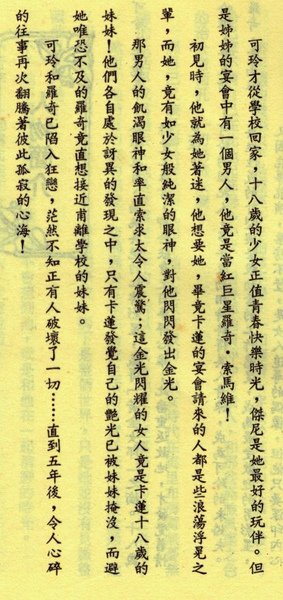 可玲才從學校回家，十八歲的少女正值青春快樂時光，傑尼是她最好的玩伴。但
是姊姊的宴會中有一個男人，他竟是當紅巨星羅奇·索馬維！
初見時，他就為她著迷，他想要她，畢竟卡蓮的宴會請來的人都是些浪蕩浮晃之
輩，而她，竟有如少女般純潔的眼神，對他閃閃發出金光。
那男人的飢渴眼神和率直索求太令人震驚；這金光閃耀的女人竟是卡蓮十八歲的
妹妹！他們各自處於訝異的發現之中，只有卡蓮發覺自己的艷光已被妹妹掩沒，而避
她唯恐不及的羅奇竟直想接近甫離學校的妹妹。
可玲和羅奇已陷入狂戀，茫然不知正有人破壞了一切……直到五年後，令人心碎
的往事再次翻騰著彼此孤寂的心海！